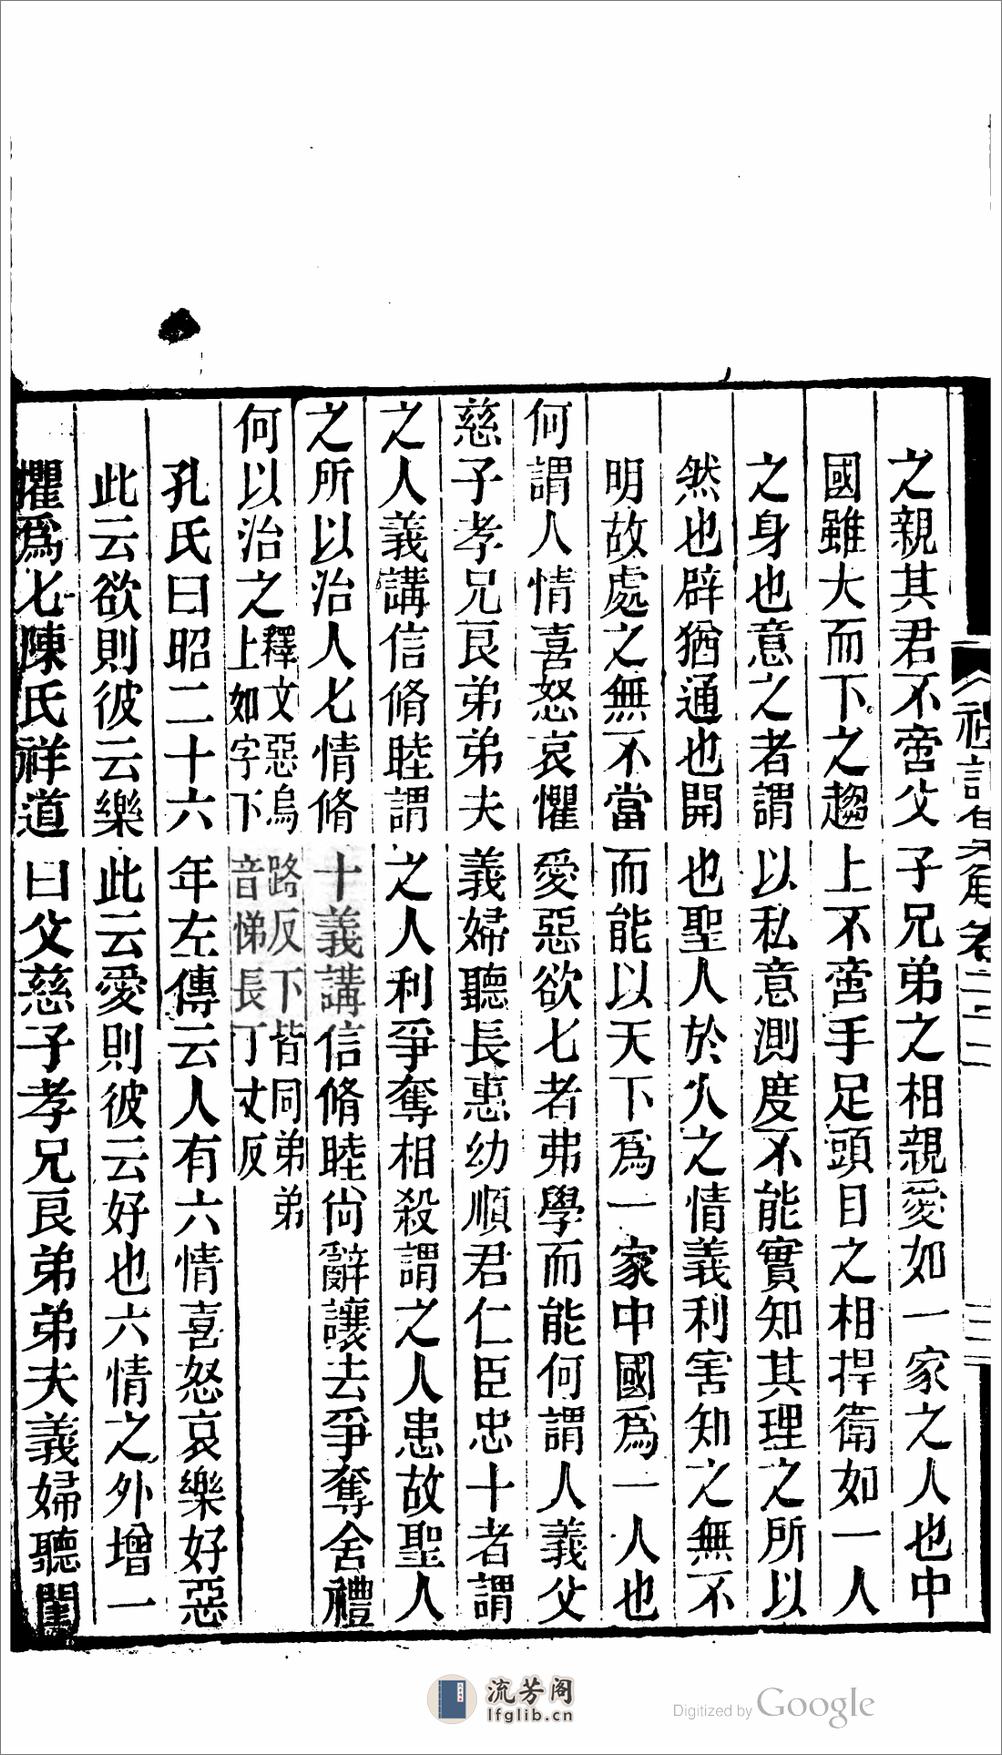 之親其君不啻父子兄弟之相親愛如一家之人也中
國雖大而下之趨上不啻手足頭目之相捍衛如一人
之身也意之者謂以私意測度不能實知其理之所以
然也辟猶通也開也聖人於人之情義利害知之無不
明故處之無不當而能以天下爲一家中國爲一人也
何謂人情喜怒哀懼愛惡欲七者弗學而能何謂人義父
慈子孝兄良弟弟夫義婦聽長惠幼順君仁臣忠十者謂
之人義講信脩睦謂之人利爭奪相殺謂之人患故聖人
之所以治人七情脩十義講信脩睦尚辭讓去爭奪舍禮
何以治之釋文惡烏路反下皆同弟弟上如字下音悌長丁丈反
孔氏曰昭二十六年左傳云人有六情喜怒哀樂好惡
此云欲則彼云樂此云愛則彼云好也六情之外增一
懼爲七陳氏祥道曰父慈子孝兄良弟弟夫義婦聽閨
流芳阁
lfglib.cn
Digitized by Google